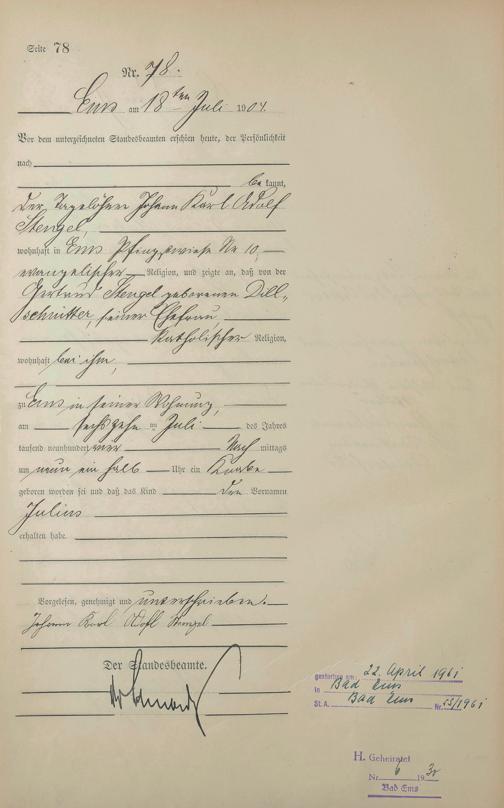 Seite 78
Nr. 78.
Ems am 18ten Juli 1904.
Vor dem unterzeichneten Standesbeamten erschien heute, der Persönlichkeit
nach
bekannt,
der Tagelöhner Johann Karl Adolf
Stengel,
wohnhaft in Ems Pfingstwiese Nr 10,
evangelischer Religion, und zeigte an, daß von der
Gertrud Stengel geborenen Dill-
schnitter, seiner Ehefrau,
katholischer Religion,
wohnhaft bei ihm,
zu Ems in seiner Wohnung,
am sechszehn ten Juli des Jahres
tausend neunhundert vier Nach mittags
um neun ein halb Uhr ein Knabe
geboren worden sei und daß das Kind den Vornamen
Julius
erhalten habe.
Vorgelesen, genehmigt und unterschrieben.
Johann Karl Adolf Stengel
Der Standesbeamte.
gestorben am 22. April 1961
in Bad Ems
St. A. Bad Ems Nr. 55/1961
H. Geheiratet
Nr. 6 1930
Bad Ems